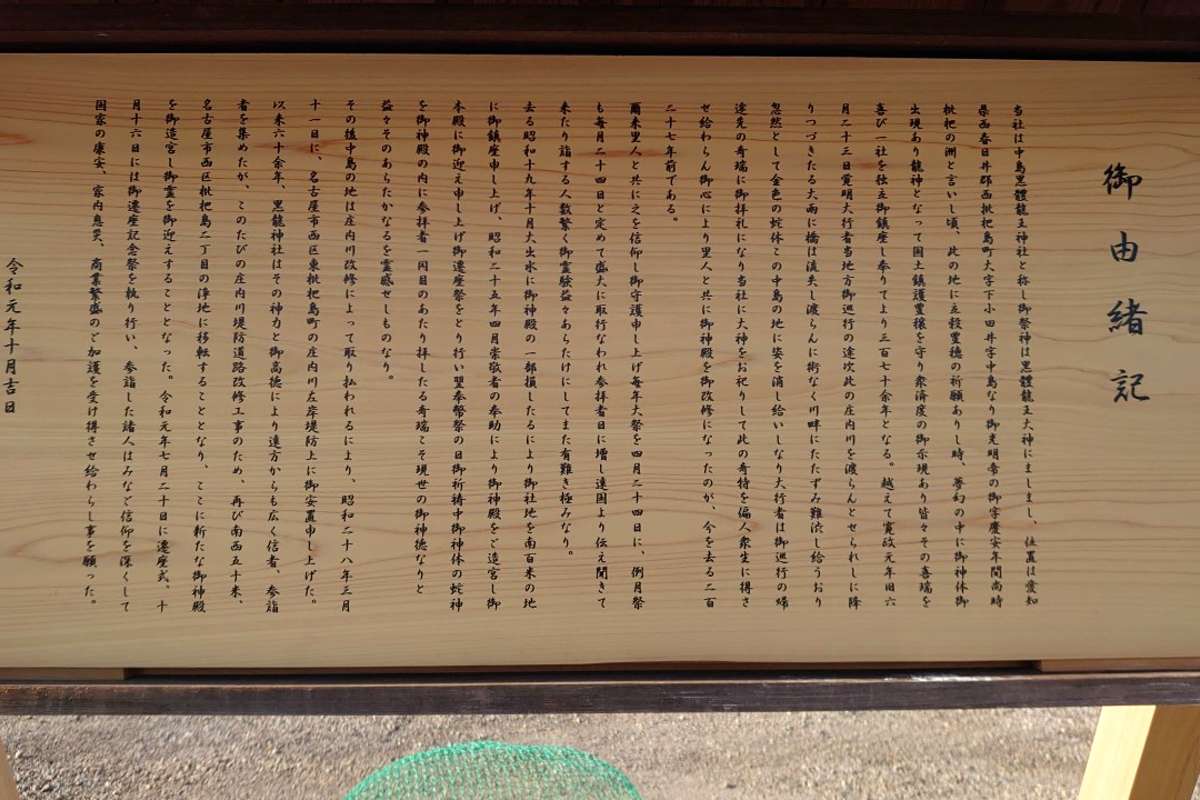 御由緒記
当社は中島黒體龍王神社と称し御祭神は黒體龍王大神にましまし、位置は愛知
県西春日井郡西枇杷島町大字下小田井字中島なり御光明帝の御宇慶安年間尚時
枇杷の洲と言いし頃、此の地に五穀豊穂の祈願ありし時、夢幻の中に御神体御
出現あり龍神となって国土鎮護豊穣を守り衆済度の御示現あり皆々その喜瑞を
喜び一社を独立御鎮座し奉りてより三百七十余年となる。越えて寛政元年旧六
月二十三日覚明大行者当地方御巡行の途次此の庄内川を渡らんとせられしに降
りつづきたる大雨に橋は流失し渡らんに術なく川畔にたたずみ難渋し給うおり
忽然として金色の蛇体この中島の地に姿を消し給いしなり大行者は御巡行の帰
途先の奇瑞に御拝礼になり当社に大神をお祀りして此の奇特を偏人衆生に得さ
せ給わらん御心により里人と共に御神殿を御改修になったのが、今を去る二百
二十七年前である。
爾来里人と共に之を信仰し御守護申し上げ毎年大祭を四月二十四日に、例月祭
も毎月二十四日と定めて盛大に取行なわれ参拝者日に増し遠国より伝え聞きて
来たり詣する人数繁く御霊験益々あらたけにしてまた有難き極みなり。
去る昭和十九年十月大出水に御神殿の一部損したるにより御社地を南百米の地
に御鎮座申し上げ、昭和二十五年四月崇敬者の奉助により御神殿をご造宮し御
本殿に御迎え申し上げ御遷座祭をとり行い翌奉幣祭の日御祈祷中御神体の蛇神
を御神殿の内に参拝者一同目のあたり拝したる奇瑞こそ現世の御神徳なりと
益々そのあらたかなるを霊感せしものなり。
その後中島の地は庄内川改修によって取り払われるにより、昭和二十八年三月
十一日に、名古屋市西区東枇杷島町の庄内川左岸堤防上に御安置申し上げた。
以来六十余年、黒龍神社はその神力と御高徳により遠方からも広く信者、参詣
者を集めたが、このたびの庄内川堤防道路改修工事のため、再び南西五十米、
名古屋市西区枇杷島二丁目の浄地に移転することとなり、ここに新たな御神殿
を御造宮し御霊を御迎えすることとなった。令和元年七月二十日に遷座式、十
月十六日には御遷座記念祭を執り行い、参詣した諸人はみなご信仰を深くして
国家の康安、家内息災、商業繁盛のご加護を受け得させ給わらし事を願った。
令和元年十月吉日